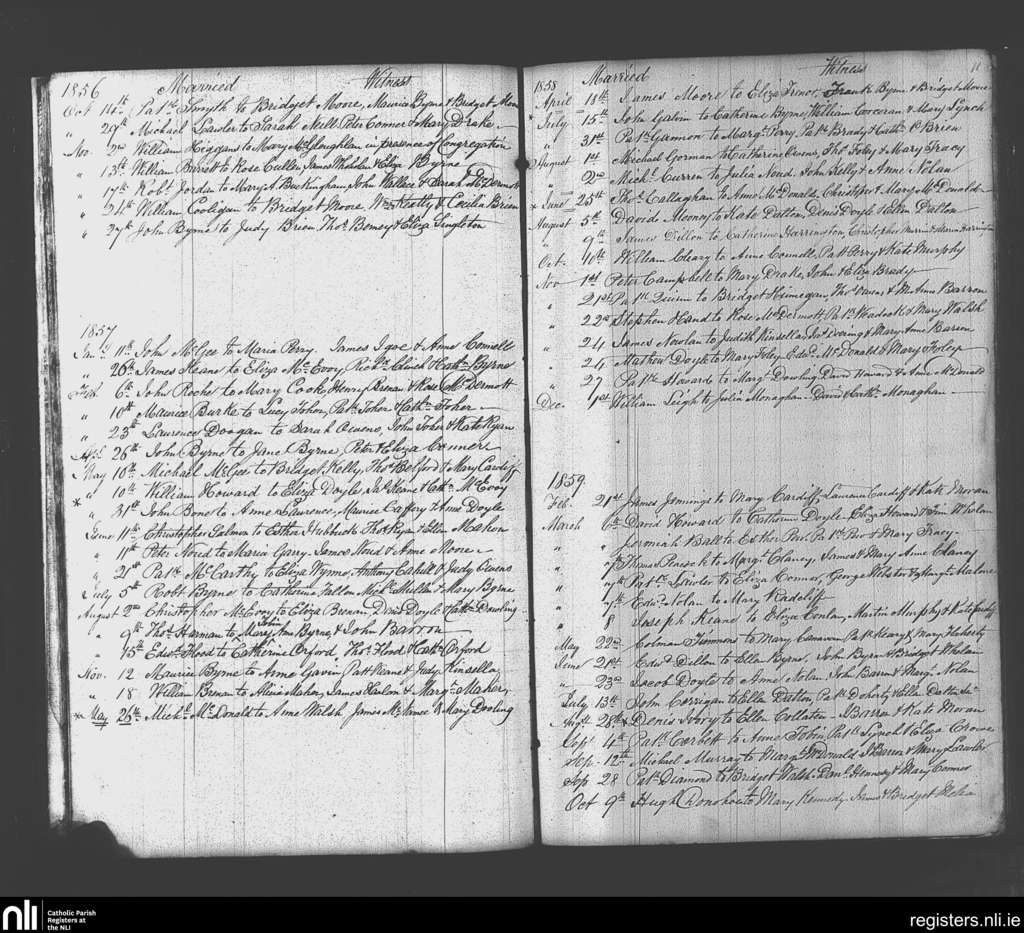 1856 Married Witness
Oct 14th Patk Smyth to Bridget Moore, Maurice Byrne & Bridget
" 29th Michael Lawler to Sarah Neill Peter Connor & Mary Drake
Nov 2nd William Higgins to Mary McGloughlan in presence of Congregation
" 13th William Barrett to Rose Cullen, James Whelan & Eliza Byrne
" 17th Robt Jordan to Mary A. Buckingham, John Wallace & Sarah McDermott
" 24th William Cooligan to Bridget Moore, Wm Keetly & Cecilia Brien
" 27th John Byrne to Judy Brien Thos & Eliza Singleton
1857
Jany 11th John McGee to Maria Perry. James Igoe & Anne Connell
" 26th James Keane to Eliza McEvoy, Richd & Cathn Byrne
Feb. 6th John Roche to Mary Cook, Henry Brenan & Rose McDermott
" 10th Maurice Burke to Lucy Toher, Patk Toher & Cathn Toher
" 23rd Laurence Doogan to Sarah Owens, John Toher & Kate Ryan
Apl 26th John Byrne to Jane Byrne, Peter & Eliza Connors
May 10th Michael McGee to Bridget Kelly, Thos Belford & Mary Cardiff
" 10th William Howard to Eliza Doyle, Jas Keane & Cathn McEvoy
* " 31st John Bone to Anne Laurence, Maurice Caffery & Anne Doyle
June 11th Christopher Salmon to Esther Hubbuck Thos Ryan & Ellen Mahon
" 11th Peter Noud to Maria Garry. James Noud & Anne Moore
" 21st Patk McCarthy to Eliza Wynne, Anthony Cahill & Judy Owens
July 5th Robt Byrne to Catherine Fallon Michl Mullen & Mary Byrne
August 2nd Christopher McEvoy to Eliza Brenan Denis Doyle & Cathn Dowling
" 9th Thos Harman to Mary Ann Byrne, & John Barron
" 15th Edwd Flood to Catherine Orford Thos Flood & Cathn Orford
Nov. 12 Maurice Byrne to Anne Gavin Patk Keane & Judy Kinsella
" 18 William Brenan to Alicia Maher, James Hanlon & Margt Maher,
* May 26th Michl McDonald to Anne Walsh James McNamee & Mary Dooling
1858 Married Witness 11
April 18th James Moore to Eliza Frank Byrne & Bridget Moore
* July 15th John Galvin to Catherine Byrne, William Corcoran & Mary Lynch
" 31st Patk Gannon to Margt Perry, Patk Brady & Cathn O'Brien
August 1st Michael Gorman to Catherine Owens, Thos Foley & Mary Tracy
" 2nd Michl Curren to Julia Noud, John Kelly & Anne Nolan
* June 25th Thos Callaghan to Anne McDonald, Christopher & Mary McDonald
August 5th David Mooney to Kate Dalton, Denis Doyle & Ellen Dalton
" 9th James Dillon to Catherine Harrington Christopher & Maria Harrington
Oct. 10th William Cleary to Anne Connell, Patk Perry & Kate Murphy
Nov 1st Peter Campbell to Mary Drake, John & Eliza Brady
" 21st Patk Quinn to Bridget Finnegan, Thos Owens & Mr Anne Barron
" 22nd Stephen Hand to Rose McDermott Patk Wadock & Mary Walsh
" 24 James Nowlan to Judith Kinsella, & Mary Anne Barron
" 24 Mathew Doyle to Mary Foley Edwd McDonald & Mary Foley
" 27 Patk Howard to Margt Dowling David Howard & Anne McDonald
Dec. 1st William Leigh to Julia Monaghan David & Cathn Monaghan
1859.
Feb. 21st James Jennings to Mary Cardiff, Laurence Cardiff & Kate Moran
March 6th David Howard to Catherine Doyle Eliza Howard & Jim Whelan
" " Jeremiah Ball to Esther Poer, Patk Poer & Mary Tracy
" 7th to Margt Clancy, James & Mary Anne Clancy
" 7th Patk Lawler to Eliza Connor, George Webster & Margt Malone
" 7th Edwd Nolan to Mary Radcliff
" 8 Joseph Keane to Eliza Conlan, Martin Murphy & Kate
May 22nd Colman Timmons to Mary Canavan Patk Keary & Mary Flaherty
June 21st Edwd Dillon to Ellen Byrne, John Byrne & Bridget Whelan
" 23rd Jacob Doyle to Anne Nolan John Barron & Margt Nolan
July 13th John Corrigan to Ellen Dalton, Patk Doherty & Ellen Dalton Senr
Augt 28th Denis Ivory to Ellen Barron & Kate Moran
Sept 4th Patk Corbett to Anne Tobin, Patk Lynch & Eliza Crowe
Sep. 12th Michael Murray to Margt McDonald J Barron & Mary Lawlor
Sep 28 Patk Diamond to Bridget Walsh Danl Hennedy & Mary Connor
Oct 9th Hugh Donohoe to Mary Kennedy James & Bridget
nli Catholic Parish
Registers at
the NLI
registers.nli.ie